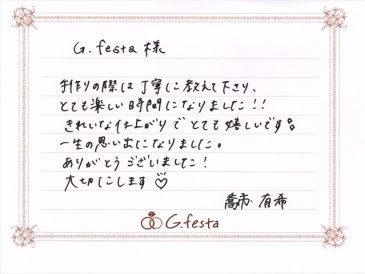 G.festa 様
手作りの際は丁寧に教えて下さり、
とても楽しい時間になりました!!
きれいな仕上がりでとても嬉しいです。
一生の思い出になりました。
ありがとうございました!
大切にします♡
喬市 有希
G.festa